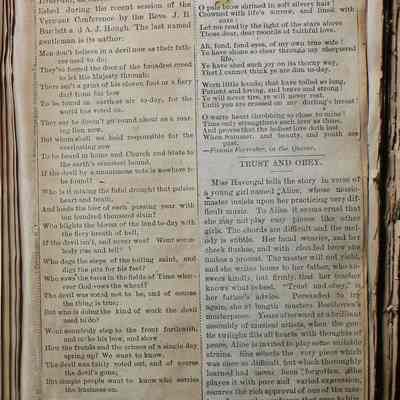 lished during the recent session of the
Vermont Conference by the Revs. J. R.
Bartlett and A. J. Hough. The last named
gentleman is its author:
Men don't believe in a devil now as their fathers used to do;
They've forced the door of the broadest creed
to let his Majesty through;
There isn't a print of his cloven foot or a fiery
dart from his bow
To be found in earth or air to-day, for the
world has voted so.
They say he doesn't go round about as a roaring lion now,
But whom shall we hold responsible for the
everlasting row
To be heard in home and Church and State to
the earth's remotest bound,
If the devil by a unanimous vote is nowhere to
be found?
Who is it mixing the fatal draught that palsies
heart and brain,
And loads the bier of each passing year with
ten hundred thousand slain?
Who blights the bloom of the land to-day with
the fiery breath of hell,
If the devil isn't, and never was? Won't somebody rise and tell?
Who dogs the steps of the toiling saint, and
digs the pits for his feet?
Who sows the tares in the fields of Time wherever God sows the wheat?
The devil was voted not to be, and of course
the thing is true;
But who is doing the kind of work the devil
used to do?
Won't somebody step to the front forthwith,
and make his bow, and show
How the frauds and the crimes of a single day
spring up? We want to know.
The devil was fairly voted out, and of course
the devil's gone;
But simple people want to know who carries
the business on.
O pale brow shrined in soft silvery hair!
Crowned with life's sorrow, and lined with
care!
Let me read by the light of the stars above
Those dear, dear records of faithful love.
Ah, fond, fond eyes, of my own true wife!
Ye have shone so clear through my
life,
Ye have shed such joy on its thorny way,
That I cannot think ye are dim to-day.
Worn little hands, that have toiled so long,
Patient and loving, and brave and strong!
Ye will never tire, ye will never rest,
Until you are crossed on my darling's breast!
O warm heart throbbing so close to mine!
Time only strengthens such love as thine.
And proves that the holiest love doth last
When summer, and beauty, and youth are
past.
—Fannie Forrester, in the Quiver.
TRUST AND OBEY.
Miss Havergal tells the story in verse of
a young girl named Alice, whose music-
master insists upon her practicing very dif-
ficult music. To Alice it seems cruel that
she may not play easy pieces like other
girls. The chords are difficult and the mel-
ody is subtle. Her hand wearies, and her
cheek flushes, and with clouded brow she
makes a protest. The master will not yield,
and she writes home to her father, who an-
swers kindly, but firmly, that her teacher
knows what is best. "Trust and obey," is
her father's advice. Persuaded to try
again, she at length masters Beethoven's
masterpiece. Years afterward at a brilliant
assembly of musical artists, when the gen-
tle twilight fills all hearts with thoughts of
peace, Alice is invited to play some suitable
strains. She selects the very piece which
was once so difficult, but which thoroughly
learned had never been forgotten. She
plays it with pure and varied expression,
secures the rich approval of one of the mas-